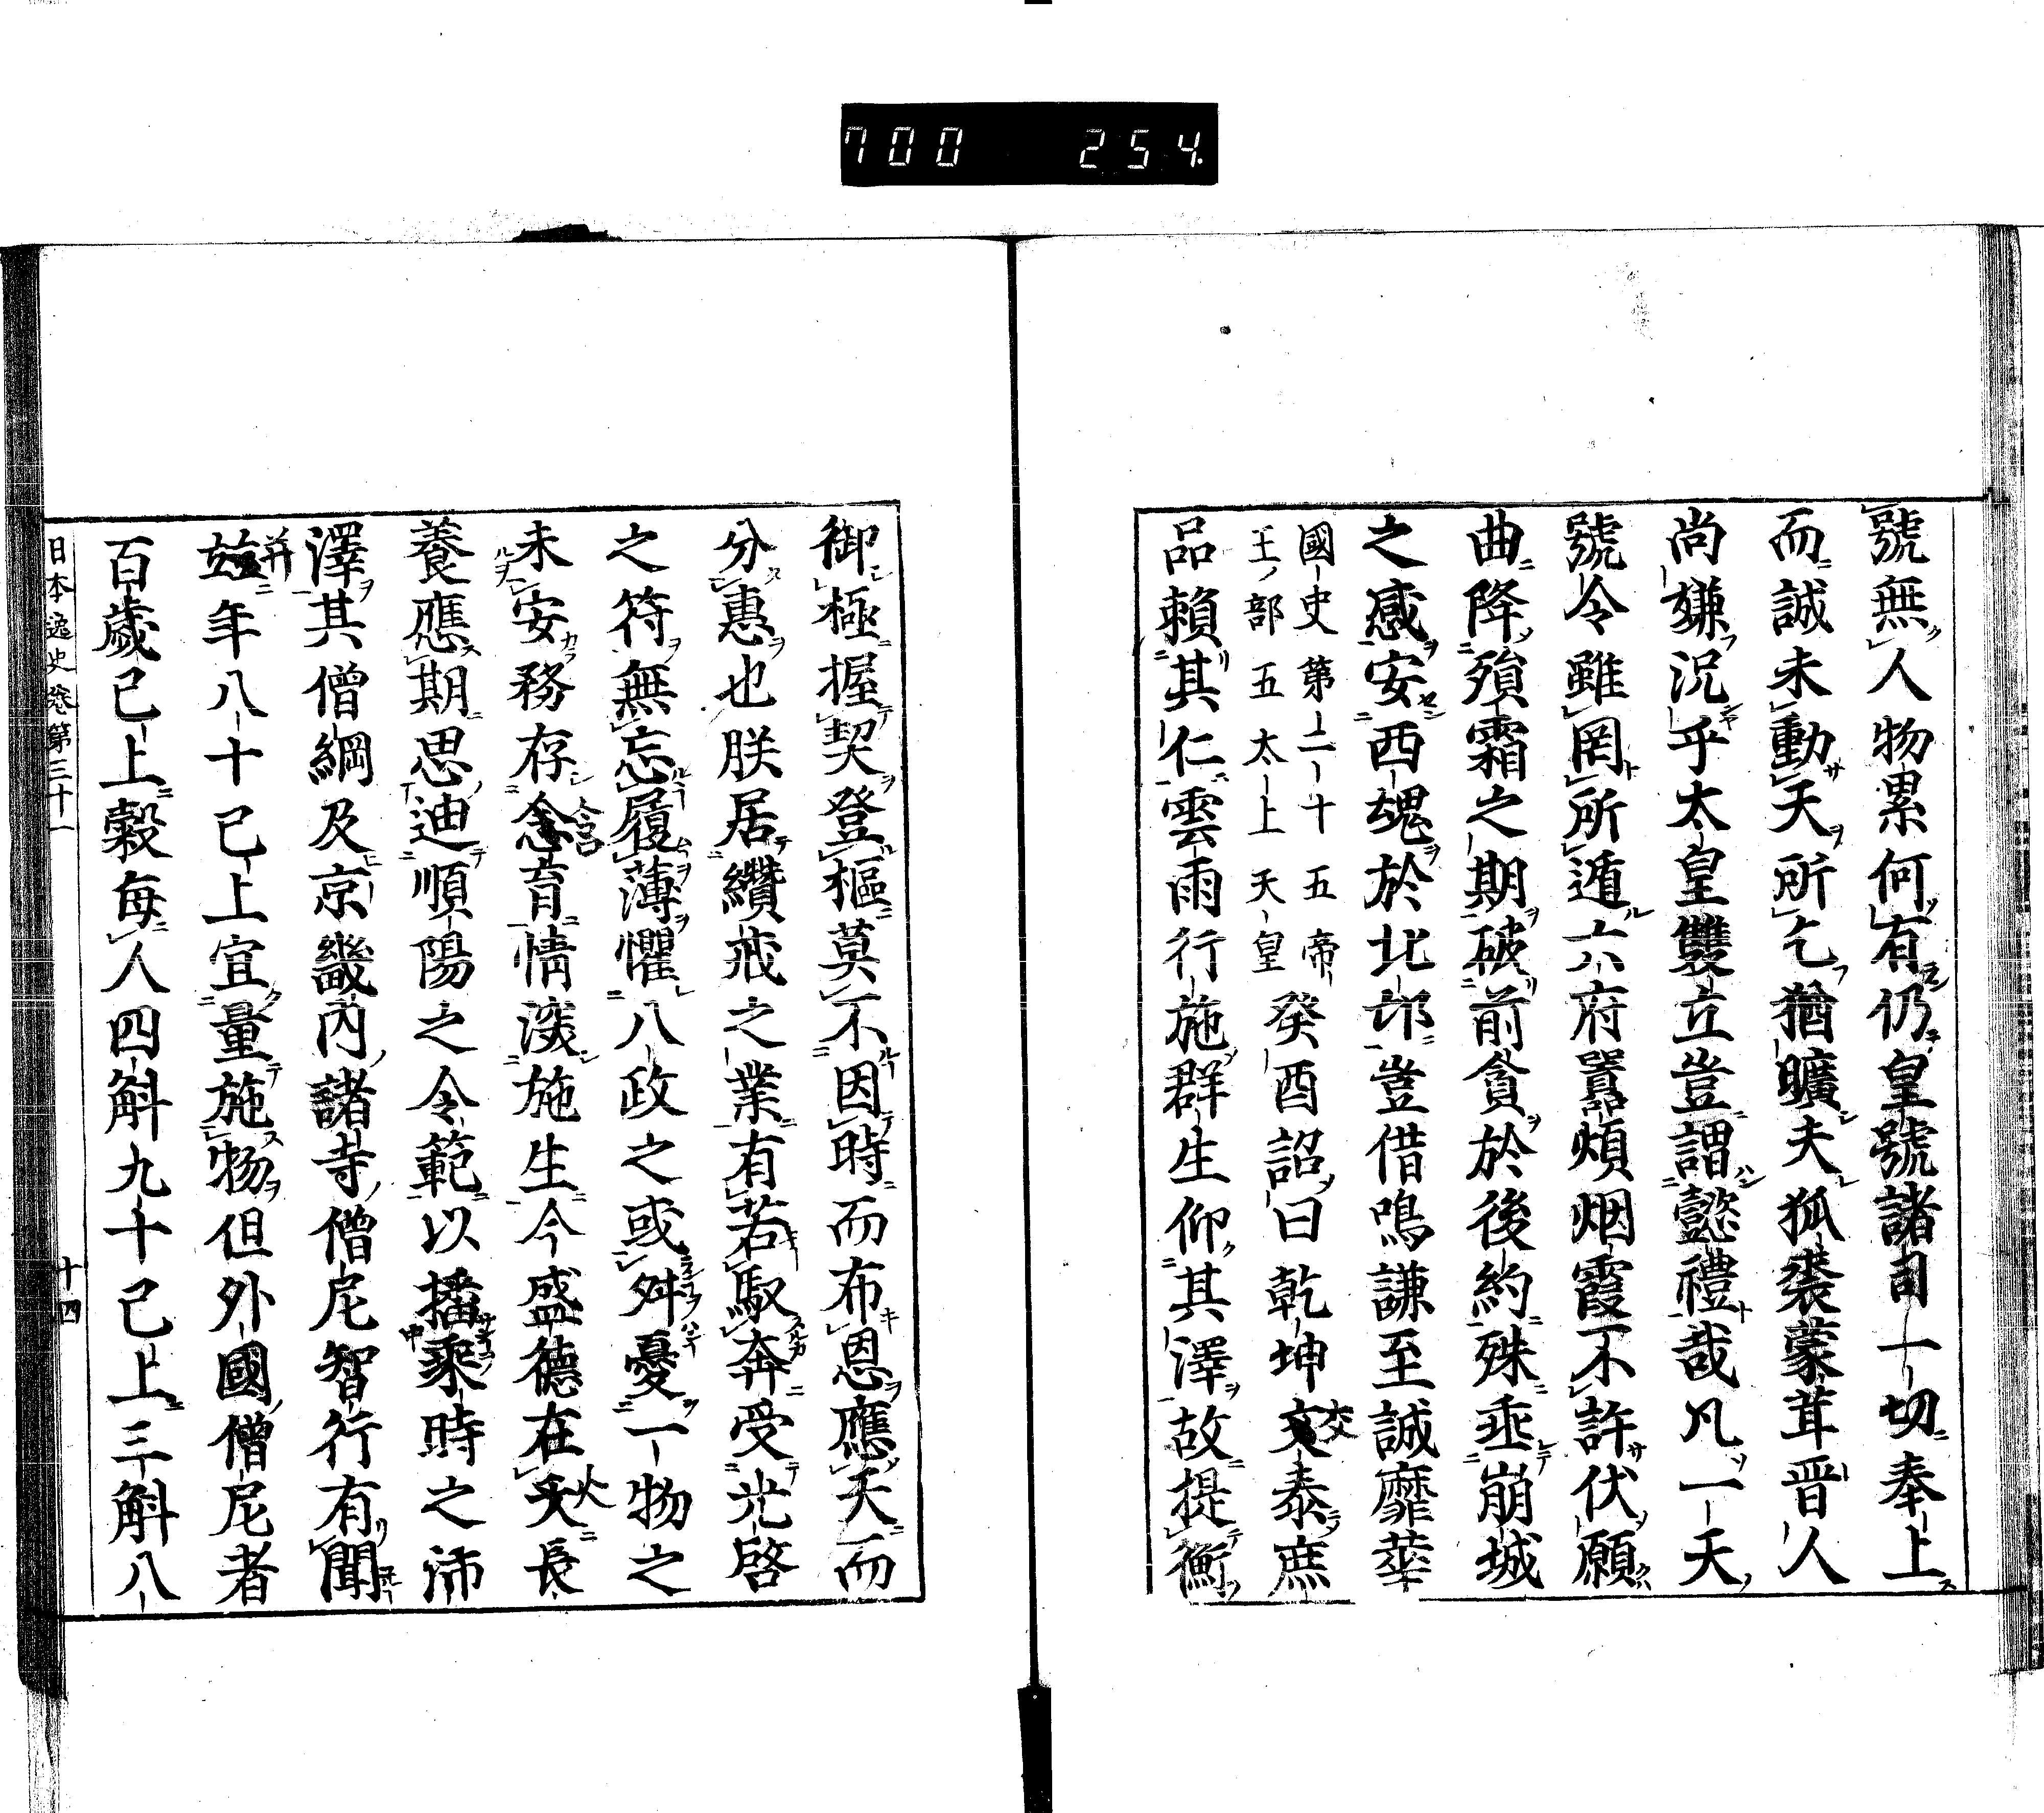 700 254
號無人物累何有仍皇號諸司一切奉上
而誠未動天所乞猶曠夫狐裘蒙茸晋人
尚嫌況乎太皇雙立豈謂懿禮哉凡一天
號令雖罔所遁六府囂煩烟霞不許伏願
曲降殞霜之期破前貪於後約殊垂崩城
之感安西魂於北邙豈借鳴謙至誠靡華
國史第二十五帝
王ノ部五太上天皇
癸酉詔曰乾坤交泰庶
品賴其仁雲雨行施群生仰其澤故提衡
御極握契登樞莫不因時而布恩應天而
分惠也朕居纘戎之業有若馭奔受光啓
之符無忘履薄懼八政之或舛憂一物之
未安務存含育情深施生今盛德在火長
養應期思迪順陽之令範以播乘時之沛
澤其僧綱及京畿內諸寺僧尼智行有聞
并年八十已上宜量施物但外國僧尼者
百歲已上穀每人四斛九十已上三斛八
日本逸史卷第三十一
十四